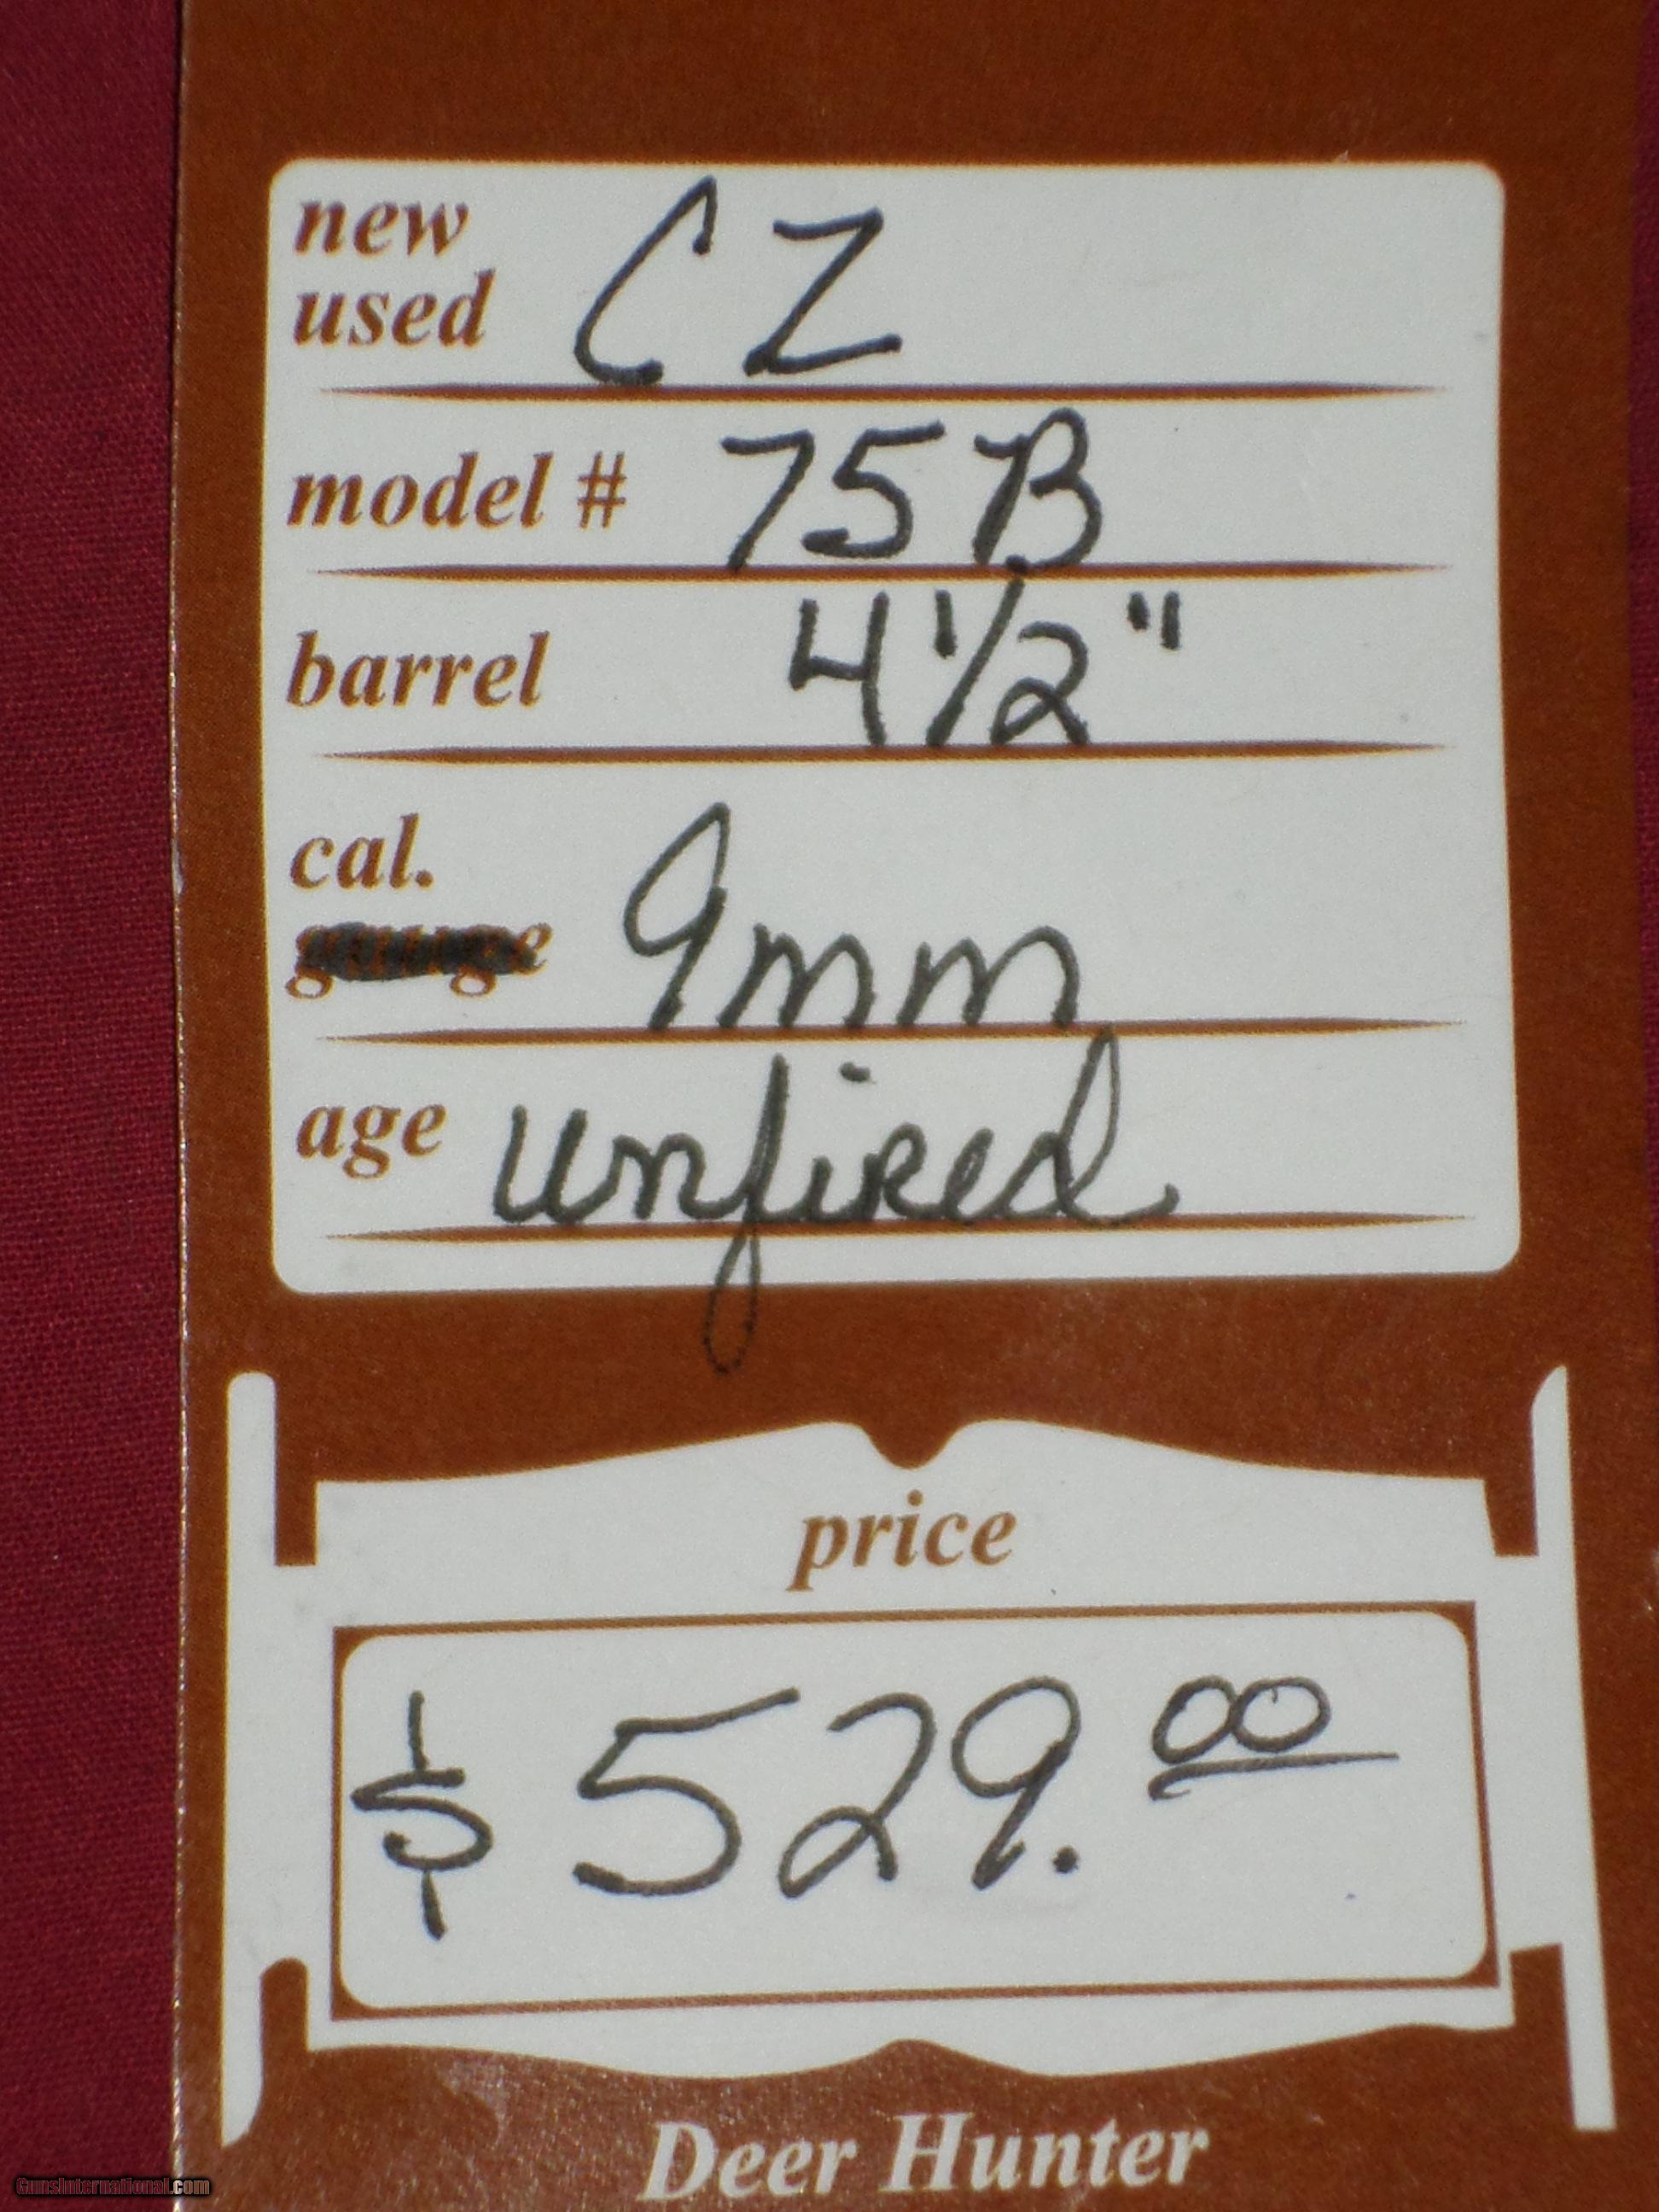 new
used CZ
model # 75B
barrel 4 1/2"
cal.
gauge 9mm
age unfired
price
$ 529.00
Deer Hunter
GunsInternational.com